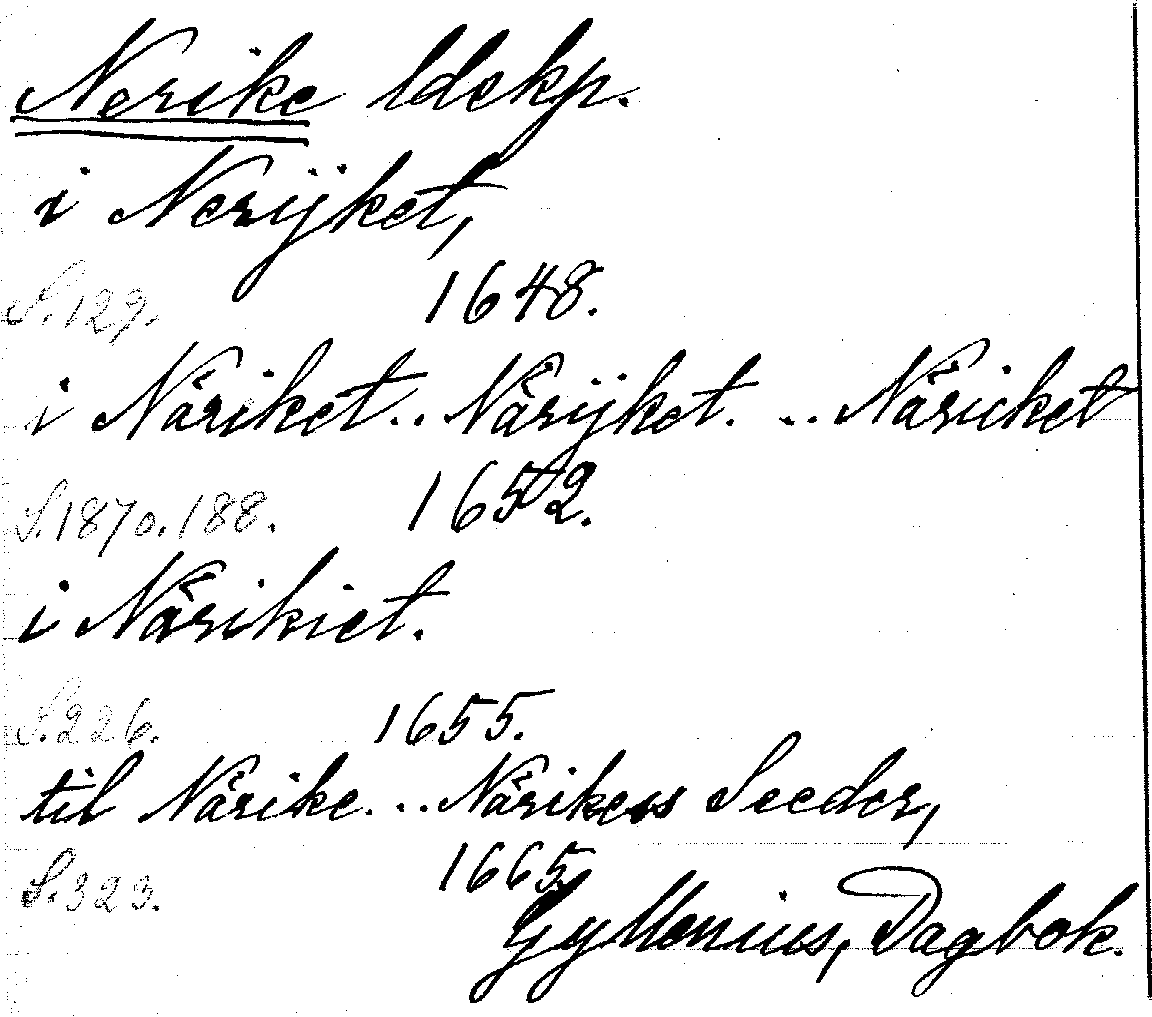 Nerike ldskp.
i Nerijket,
S. 129. 1648.
i Näriket.. Närijket. .. Näricket
S. 187o. 188. 1652.
i Närikiet.
S. 226. 1655.
til Närike. .. Närikess Seeder,
S. 323. 1665.
Gyllenius, Dagbok.